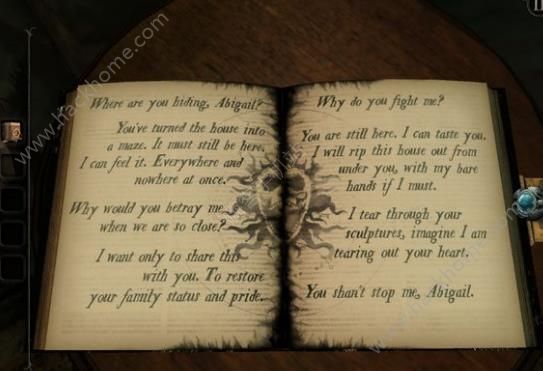 Where are you hiding, Abigail?
You've turned the house into
a maze. It must still be here.
I can feel it. Everywhere and
nowhere at once.
Why would you betray me
when we are so close?
I want only to share this
with you. To restore
your family status and pride.
Why do you fight me?
You are still here. I can taste you.
I will rip this house out from
under you, with my bare
hands if I must.
I tear through your
sculptures, imagine I am
tearing out your heart.
You shan't stop me, Abigail.
www.hackhome.com
www.hackhome.com